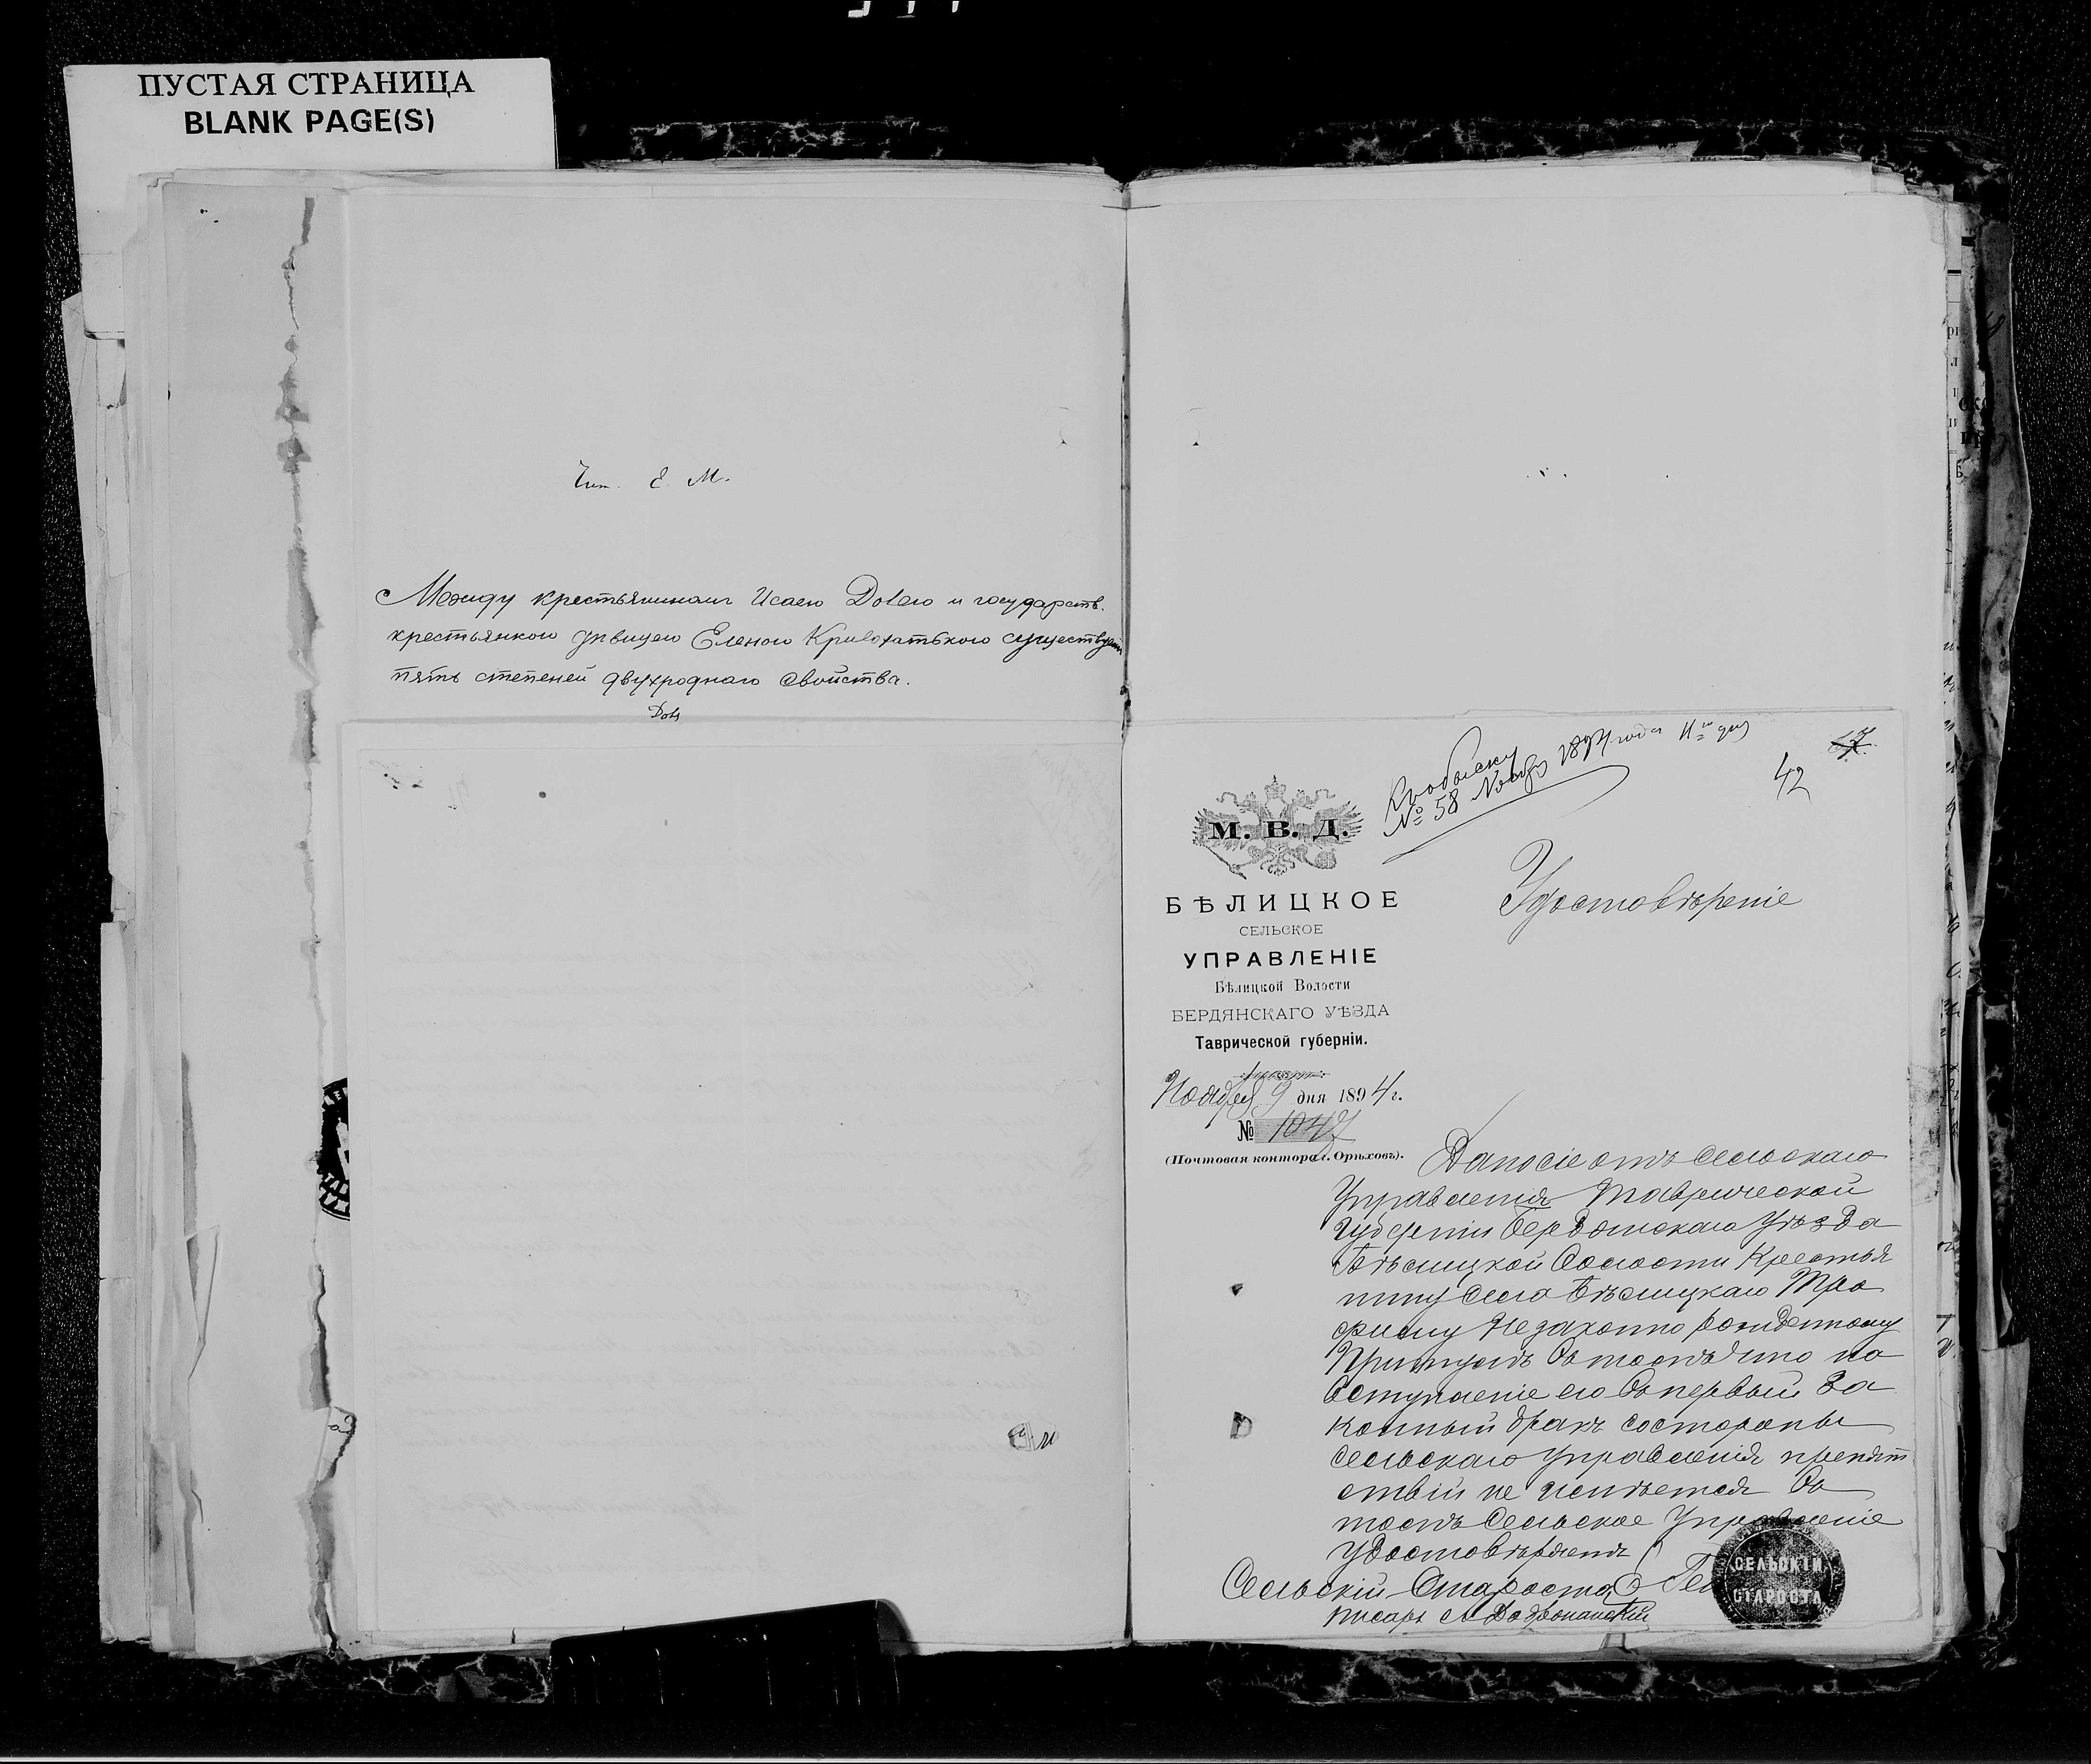 ПУСТАЯ СТРАНИЦА
BLANK PAGE(S)
Е. М.
Между крестьяниномъ Исаею и государств.
крестьянкою дѣвицею Еленою Кривохатькою существуетъ
пять степеней двухроднаго свойства.
Къ обыску
№ 58 Ноября 1894 года 11го дня
17.
42
М. В. Д.
БѢЛИЦКОЕ
СЕЛЬСКОЕ
УПРАВЛЕНІЕ
Бѣлицкой Волости
БЕРДЯНСКАГО УѢЗДА
Таврической губерніи.
Ноября 9 дня 1894 г.
№ 1047
(Почтовая контора г. Орѣховъ).
Удостовѣреніе
Дано сіе отъ Сельскаго
Управленія Таврической
губерніи Бердянскаго Уѣзда
Бѣлицкой Волости Крестья
нину Села Бѣлицкаго Тро
фиму Незаконно рожденному
въ томъ что на
вступленіе его въ первый за
конный бракъ со стороны
Сельскаго Управленія препят
ствій не имѣется въ
томъ Сельское Управленіе
удостовѣряетъ
Сельскій Староста
писарь
СЕЛЬСКІЙ
СТАРОСТА